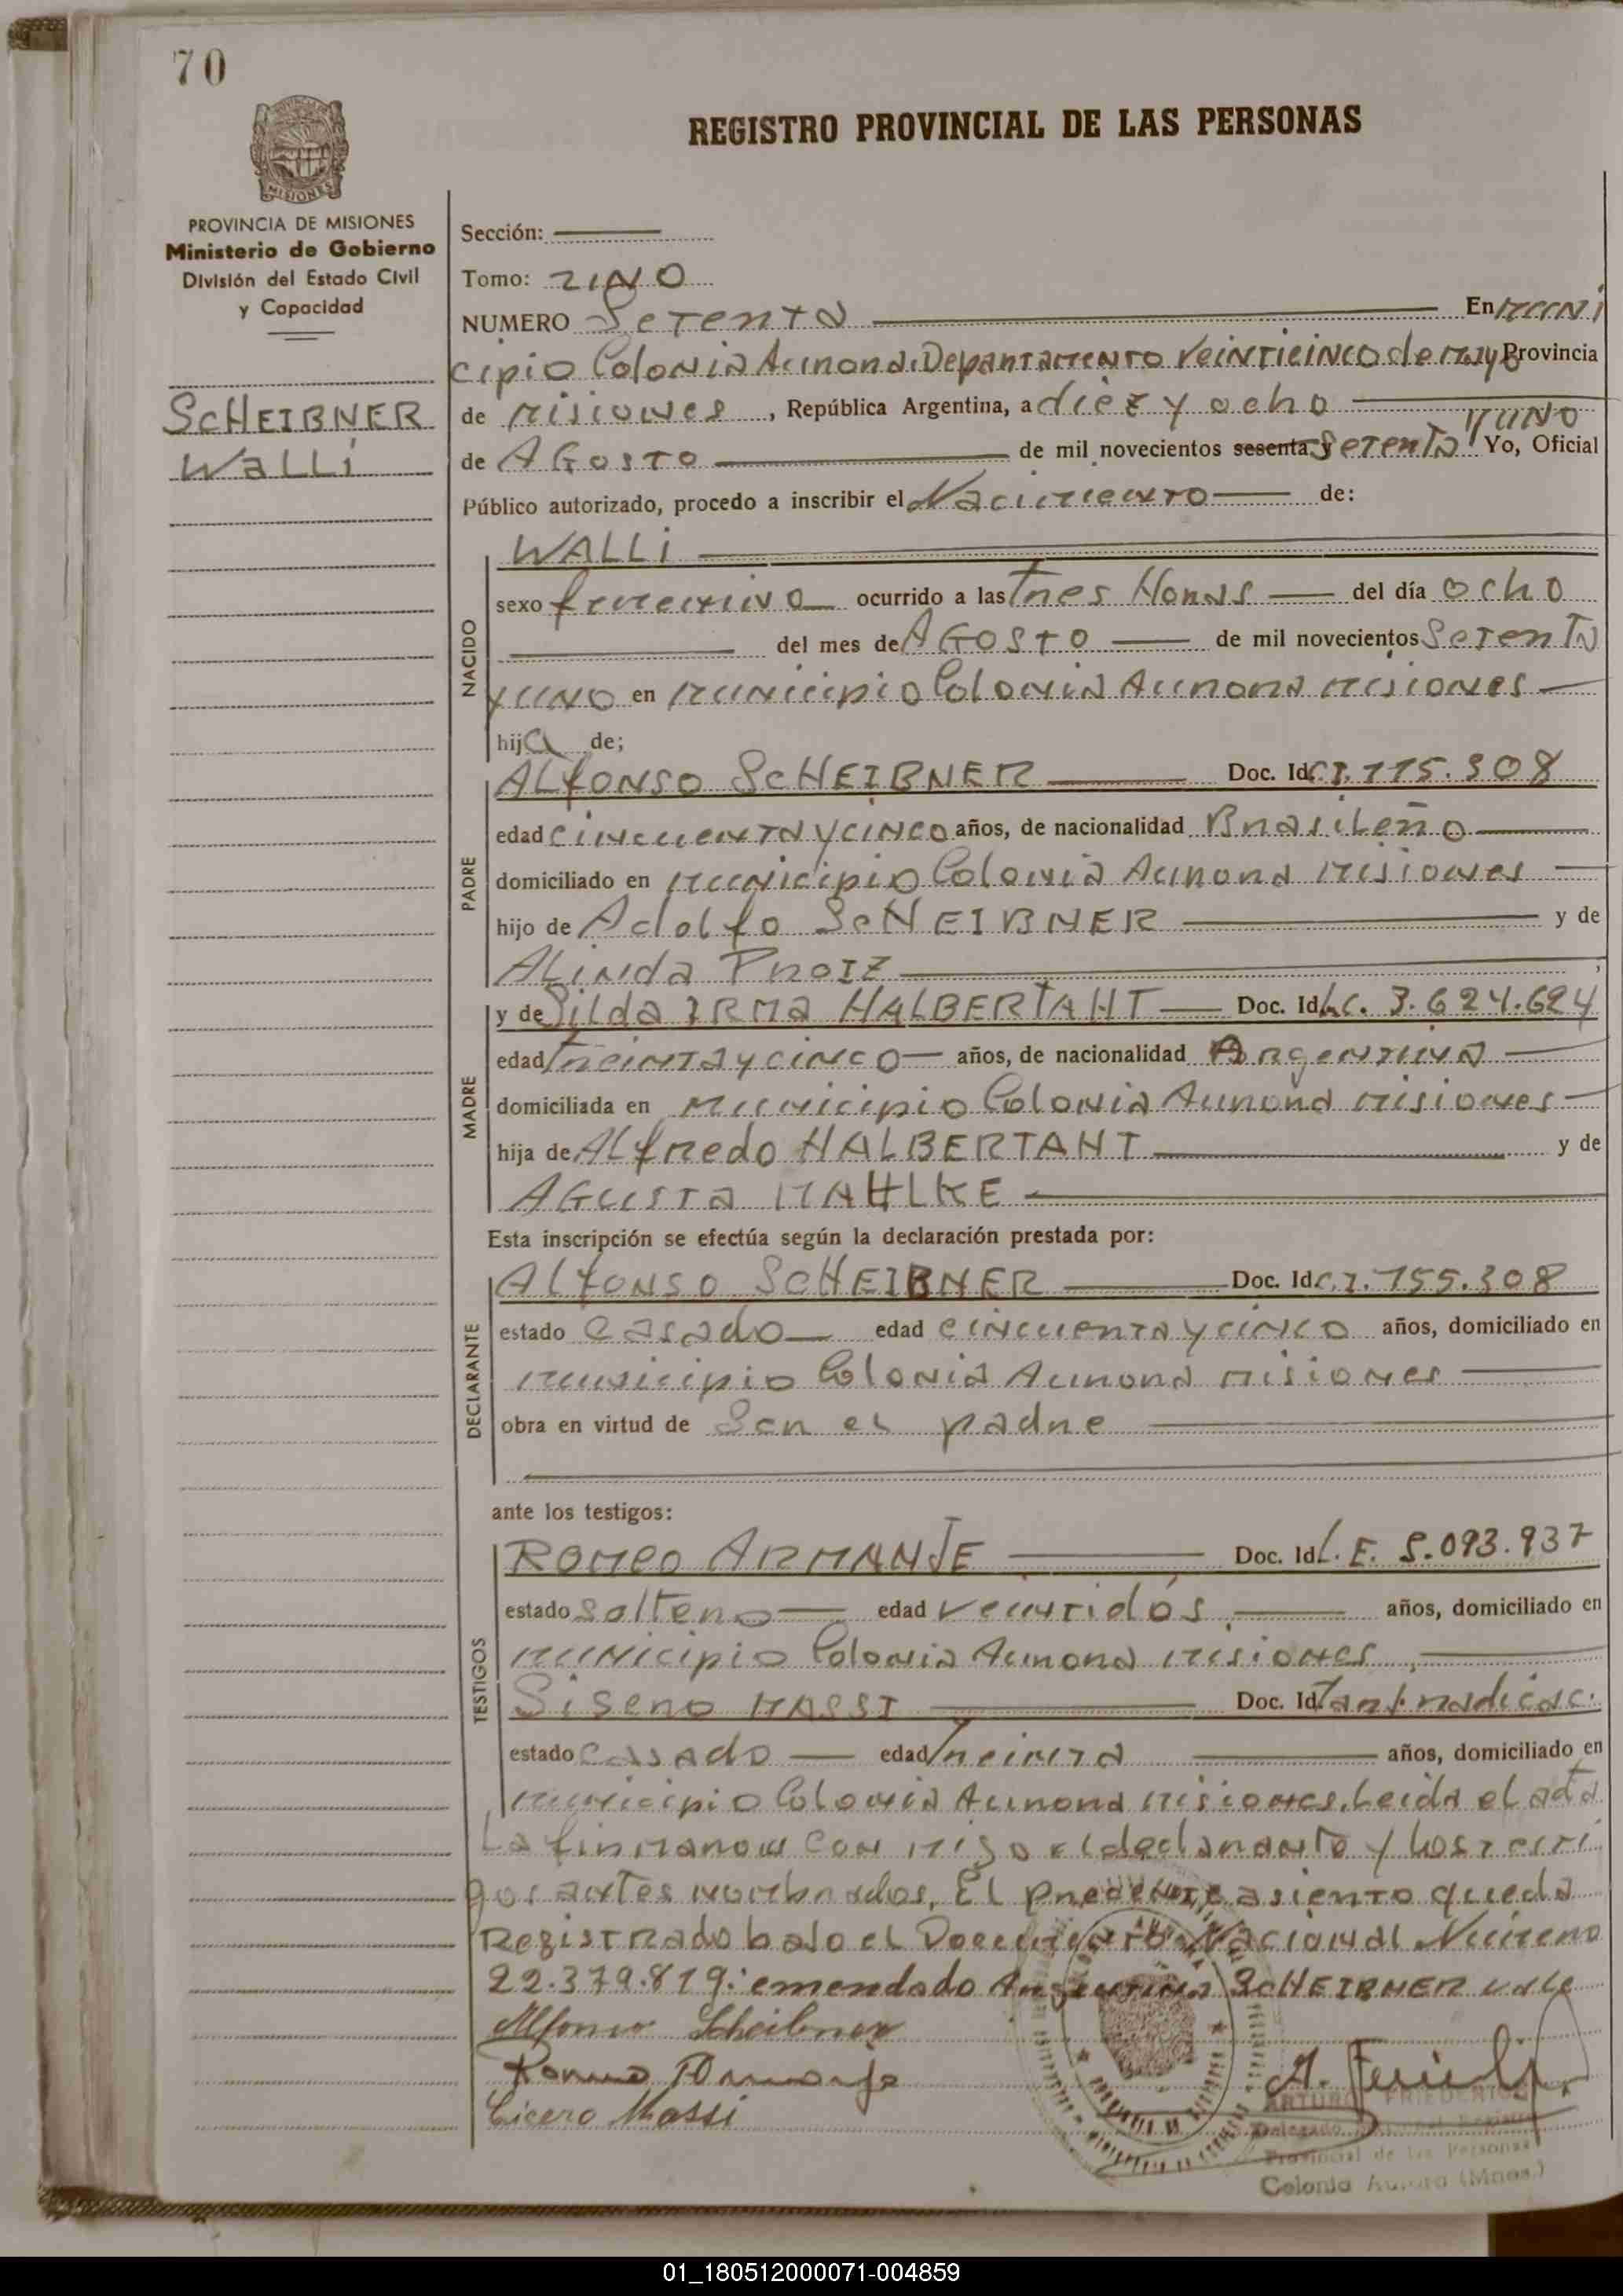 70
REGISTRO PROVINCIAL DE LAS PERSONAS
PROVINCIA DE MISIONES
Ministerio de Gobierno
División del Estado Civil
y Capacidad
SCHEIBNER
WALLi
Sección:
Tomo: UNO
NUMERO Setenta En Muni
cipio Colonia Aurora, Departamento Veinticinco de mayo Provincia
de Misiones, República Argentina, a diez y ocho
de AGosto de mil novecientos sesenta y setenta y UNO Yo, Oficial
Público autorizado, procedo a inscribir el Nacimiento de:
NACIDO
WALLi
sexo femenino ocurrido a las Tres Horas del día ocho
del mes de AGOSTO de mil novecientos Setenta
y UNO en Municipio Colonia Aurora Misiones
hija de;
PADRE
ALfONSO SCHEIBNER Doc. Id. C.I. 115.308
edad cincuenta y cinco años, de nacionalidad Brasileño
domiciliado en Municipio Colonia Aurora Misiones
hijo de Adolfo SCHEIBNER y de
ALinda
MADRE
y de Silda IRMA HALBERTAHT Doc. Id. L.C. 3.624.624
edad Treinta y cinco años, de nacionalidad Argentina
domiciliada en Municipio Colonia Aurora Misiones
hija de ALfredo HALBERTAHT y de
AGUSTA MAHLKE
Esta inscripción se efectúa según la declaración prestada por:
DECLARANTE
ALfONSO SCHEIBNER Doc. Id. C.I. 155.308
estado casado edad cincuenta y cinco años, domiciliado en
Municipio Colonia Aurora Misiones
obra en virtud de Ser el padre
ante los testigos:
TESTIGOS
ROMEO ARMANJE Doc. Id. L.E. 8.093.937
estado soltero edad veintidós años, domiciliado en
Municipio Colonia Aurora Misiones
Sisero MASSI Doc. Id.
estado casado edad Treinta años, domiciliado en
Municipio Colonia Aurora Misiones. Leida el acta
La firmaron con migo el declarante y los testi
gos antes nombrados. El presente asiento queda
Registrado bajo el Documento Nacional Numero
22.379.819: emendado Argentina SCHEIBNER vale
Alfonso Scheibner
Romeo Armanje
Cicero Massi
ARTURO FRIEDERICH
Provincial de las Personas
Colonia Aurora (Mnes.)
01_180512000071-004859